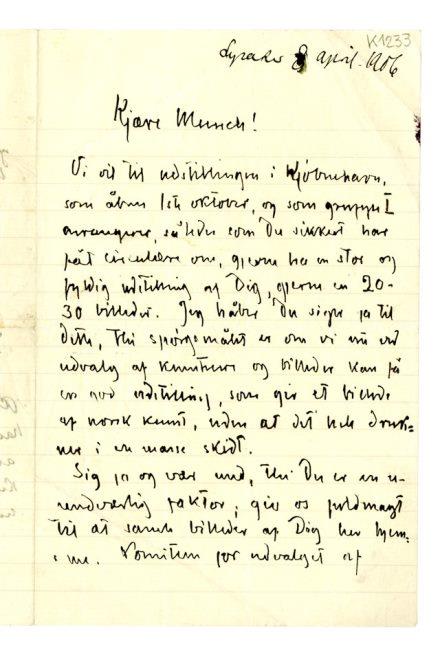 K1233
Lysaker 8 april. 1906
Kjære Munch!
Vi vil til udstillingen i Kjöbenhavn,
som åbner 1ste oktober, og som gruppe I
arrangerer, således som Du sikkert har
fåt circulære om, gjerne ha en stor og
fyldig udstilling af Dig, gjerne en 20-
30 billeder. Jeg håber Du siger ja til
dette, thi spörgsmålet er om vi nu ved
udvalg af kunstnere og billeder kan få
en god udstilling, som gir et billede
af norsk kunst, uden at det hele druk=
ner i en masse skidt.
Sig ja og vær med, thi Du er en u-
nendværlig faktor, giv os fuldmagt
til at samle billeder af Dig her hjem-
me. Komiteen for udvalget af